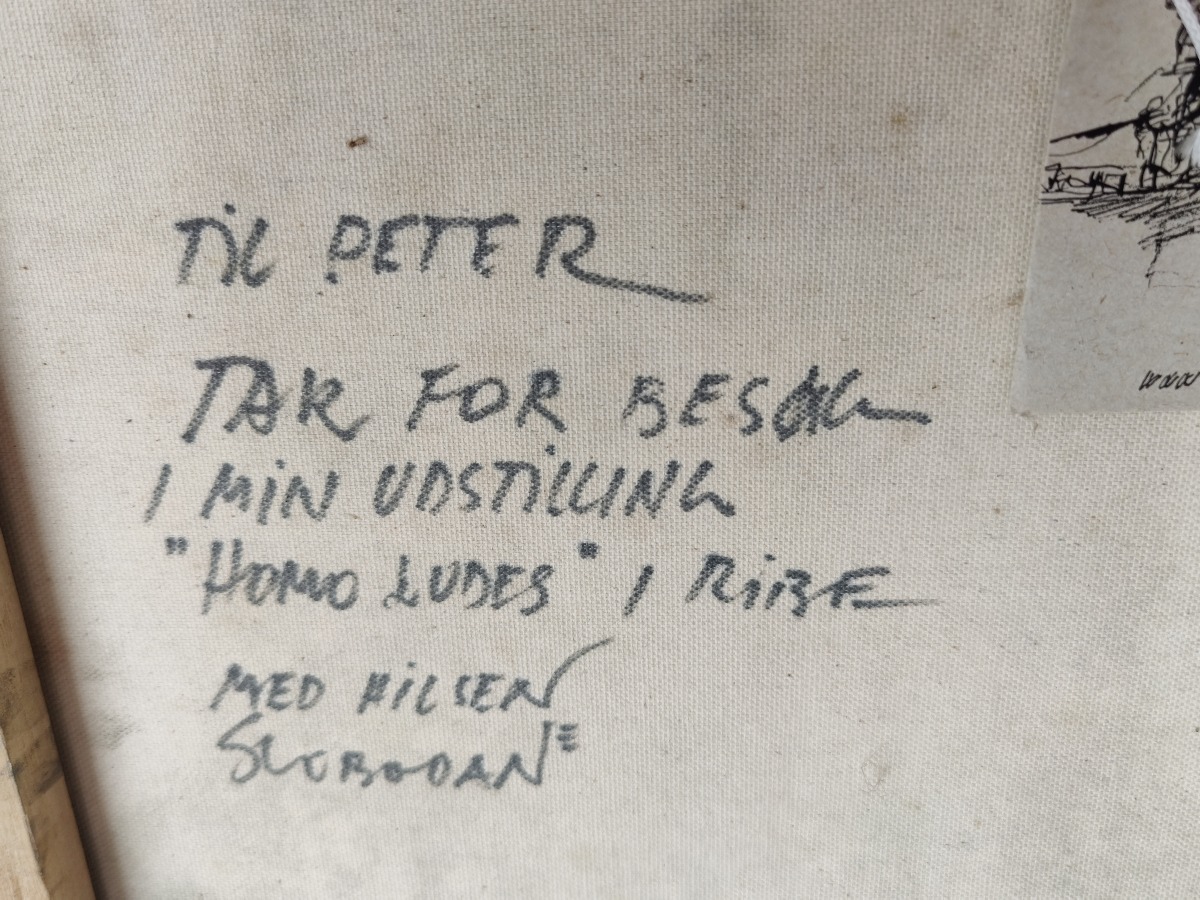 TiL PETER
TAK FOR BESØG
I MiN UDSTiLLING
"HOMO LUDES" I RiBE
MED HiLSEN
SLOBODAN